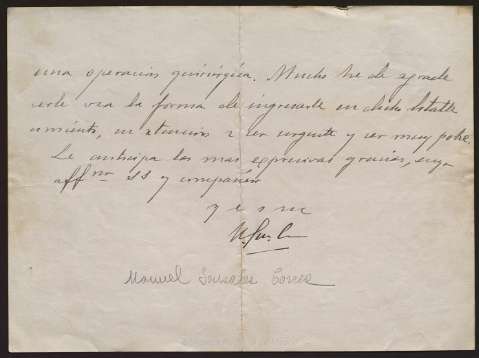 una operación quirúrgica. Mucho he de agrade
cerle vea la forma de ingresarle en dicho Estable
cimiento, en atención a ser urgente y ser muy pobre.
Le anticipa las mas expresivas gracias, suyo
affmo SS y compañero
q e s m
Manuel Gonzalez